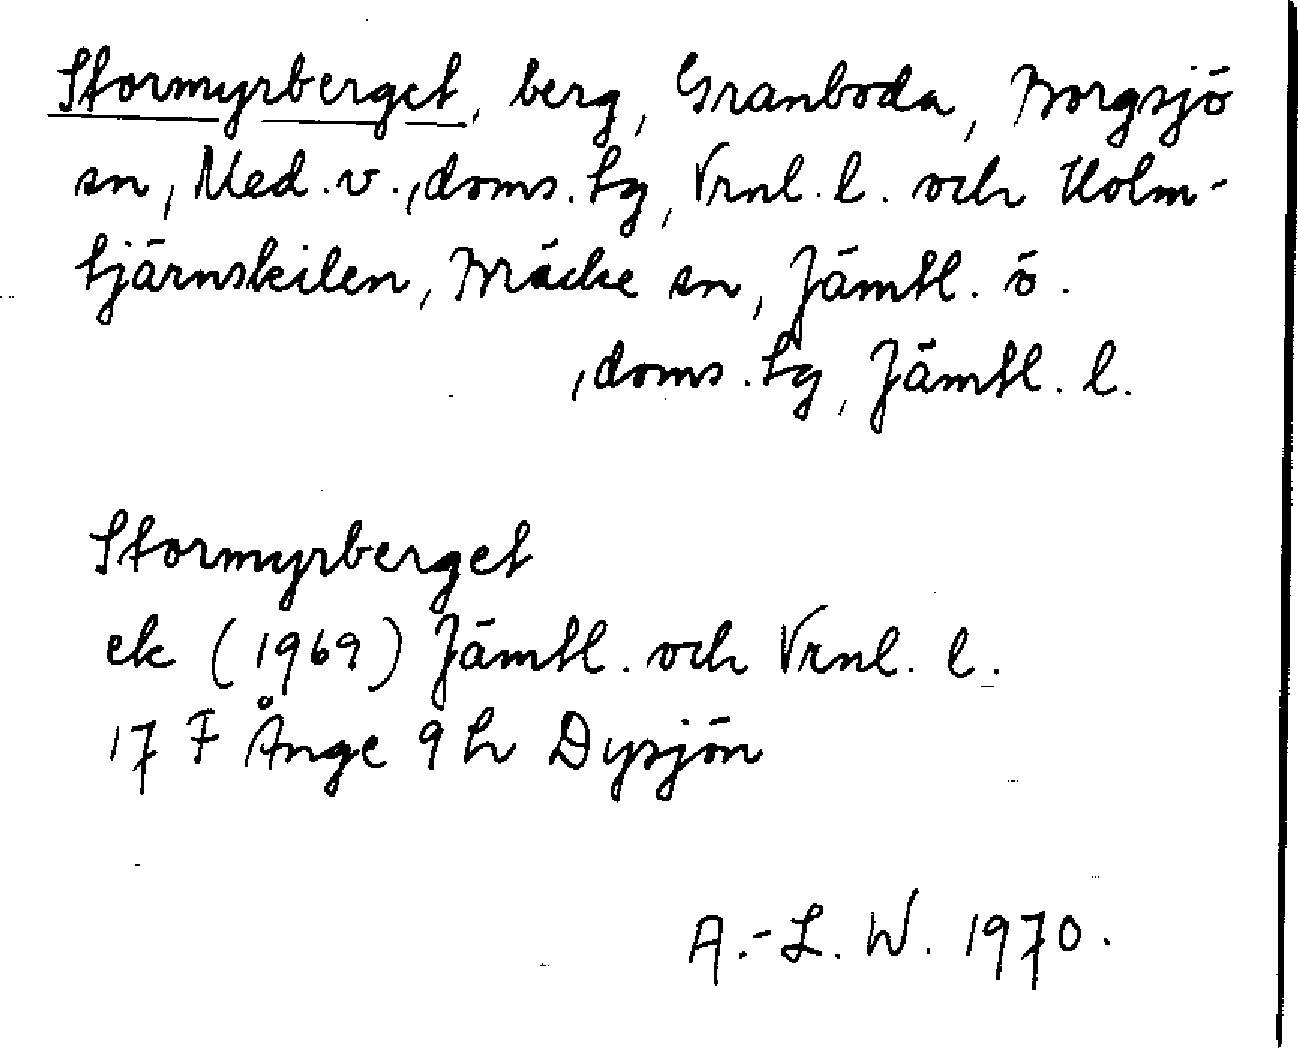 Stormyrberget, berg, Granboda, Borgsjö
sn, Med. v., doms. tg, Vrnl. l. och Holm-
tjärnskilen, Bräcke sn, Jämtl. ö.
, doms. tg, Jämtl. l.
Stormyrberget
ek (1969) Jämtl. och Vrnl. l.
17 F Ånge 9 h Dysjön
A.-L. W. 1970.